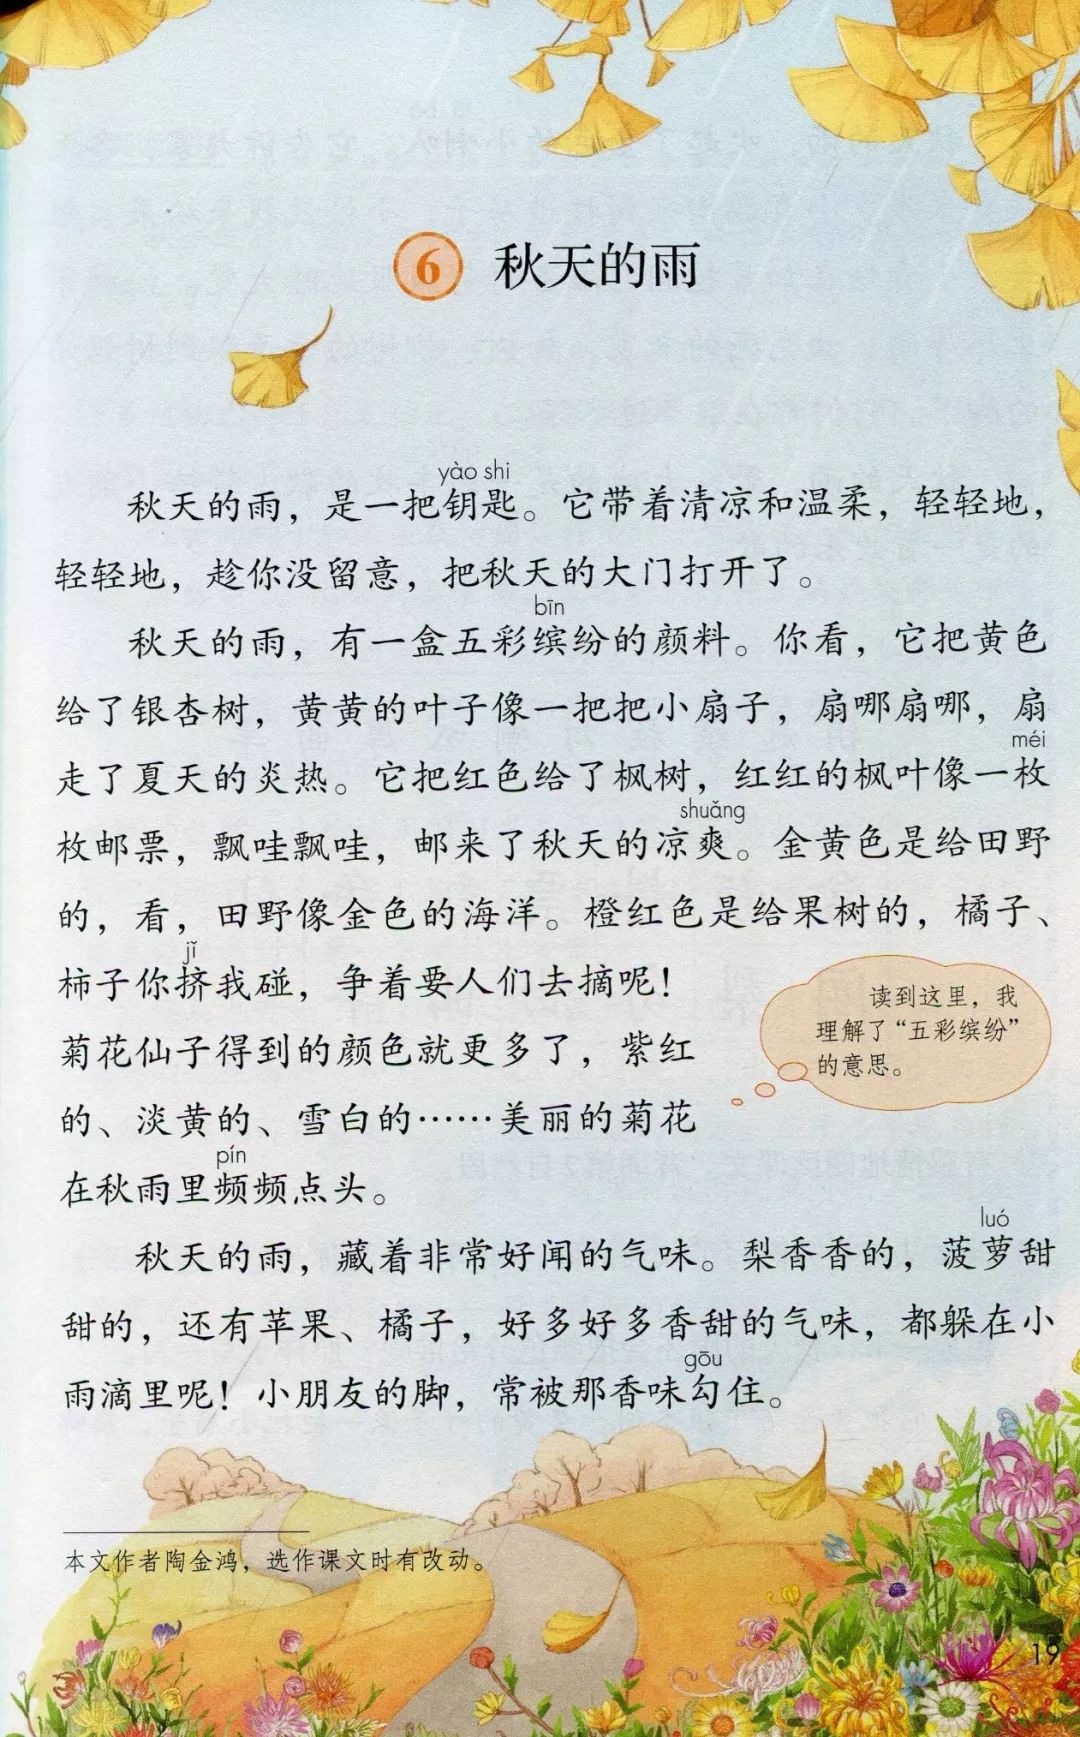 6 秋天的雨
yào shi
秋天的雨，是一把钥匙。它带着清凉和温柔，轻轻地，
轻轻地，趁你没留意，把秋天的大门打开了。
bīn
秋天的雨，有一盒五彩缤纷的颜料。你看，它把黄色
给了银杏树，黄黄的叶子像一把把小扇子，扇哪扇哪，扇
méi
走了夏天的炎热。它把红色给了枫树，红红的枫叶像一枚
shuǎng
枚邮票，飘哇飘哇，邮来了秋天的凉爽。金黄色是给田野
的，看，田野像金色的海洋。橙红色是给果树的，橘子、
jǐ
柿子你挤我碰，争着要人们去摘呢！
菊花仙子得到的颜色就更多了，紫红
的、淡黄的、雪白的……美丽的菊花
pín
在秋雨里频频点头。
读到这里，我
理解了“五彩缤纷”
的意思。
luó
秋天的雨，藏着非常好闻的气味。梨香香的，菠萝甜
甜的，还有苹果、橘子，好多好多香甜的气味，都躲在小
gōu
雨滴里呢！小朋友的脚，常被那香味勾住。
本文作者陶金鸿，选作课文时有改动。
19